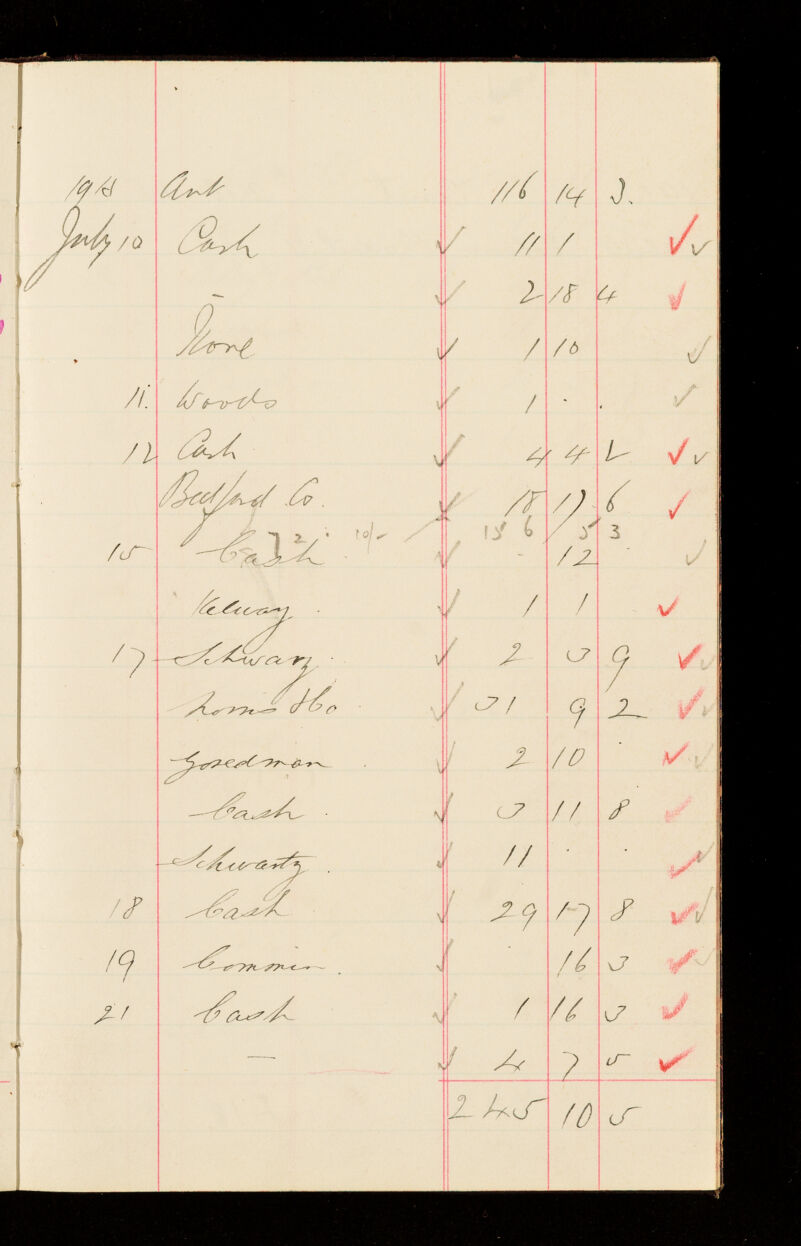 Amt 116 14 3.
July 10 Cash ✓ 11 1 ✓ ✓
– ✓ 2 18 4 ✓
✓ 1 10 ✓
11. Woods ✓ 1 . . ✓
12 Cash ✓ 4 4 2 ✓ ✓
Bedford Co. 18 17 6 ✓
72 10/- 15 6 5 3
15 Cash ✓ . 12 . ✓
Kelway . ✓ 1 1 ✓
17 Schwarz . ✓ 2 3 9 ✓ ✓
&Co ✓ 31 9 2 ✓ ✓
. ✓ 2 10 . ✓ ✓
Cash . ✓ 3 11 8 ✓
Schwartz . ✓ 11 . . ✓ ✓
18 Cash ✓ 29 17 8 ✓ ✓
19 Commin . ✓ . 16 3 ✓ ✓
21 Cash ✓ 1 16 3 ✓
– ✓ 4 7 5 ✓
245 10 5